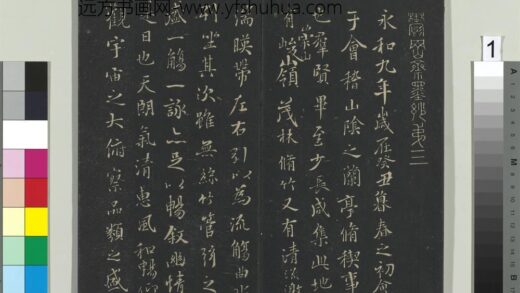 远方书画网 www.yfshuhua.com
鬱岡齋墨妙第三
永和九年歲在癸丑暮春之初會
于會稽山陰之蘭亭脩稧事
也羣賢畢至少長咸集此地
有崇山峻領茂林脩竹又有清流激
湍暎帶左右引以為流觴曲水
列坐其次雖無絲竹管弦之
盛一觴一詠亦足以暢敘幽情
是日也天朗氣清惠風和暢仰
觀宇宙之大俯察品類之盛
1